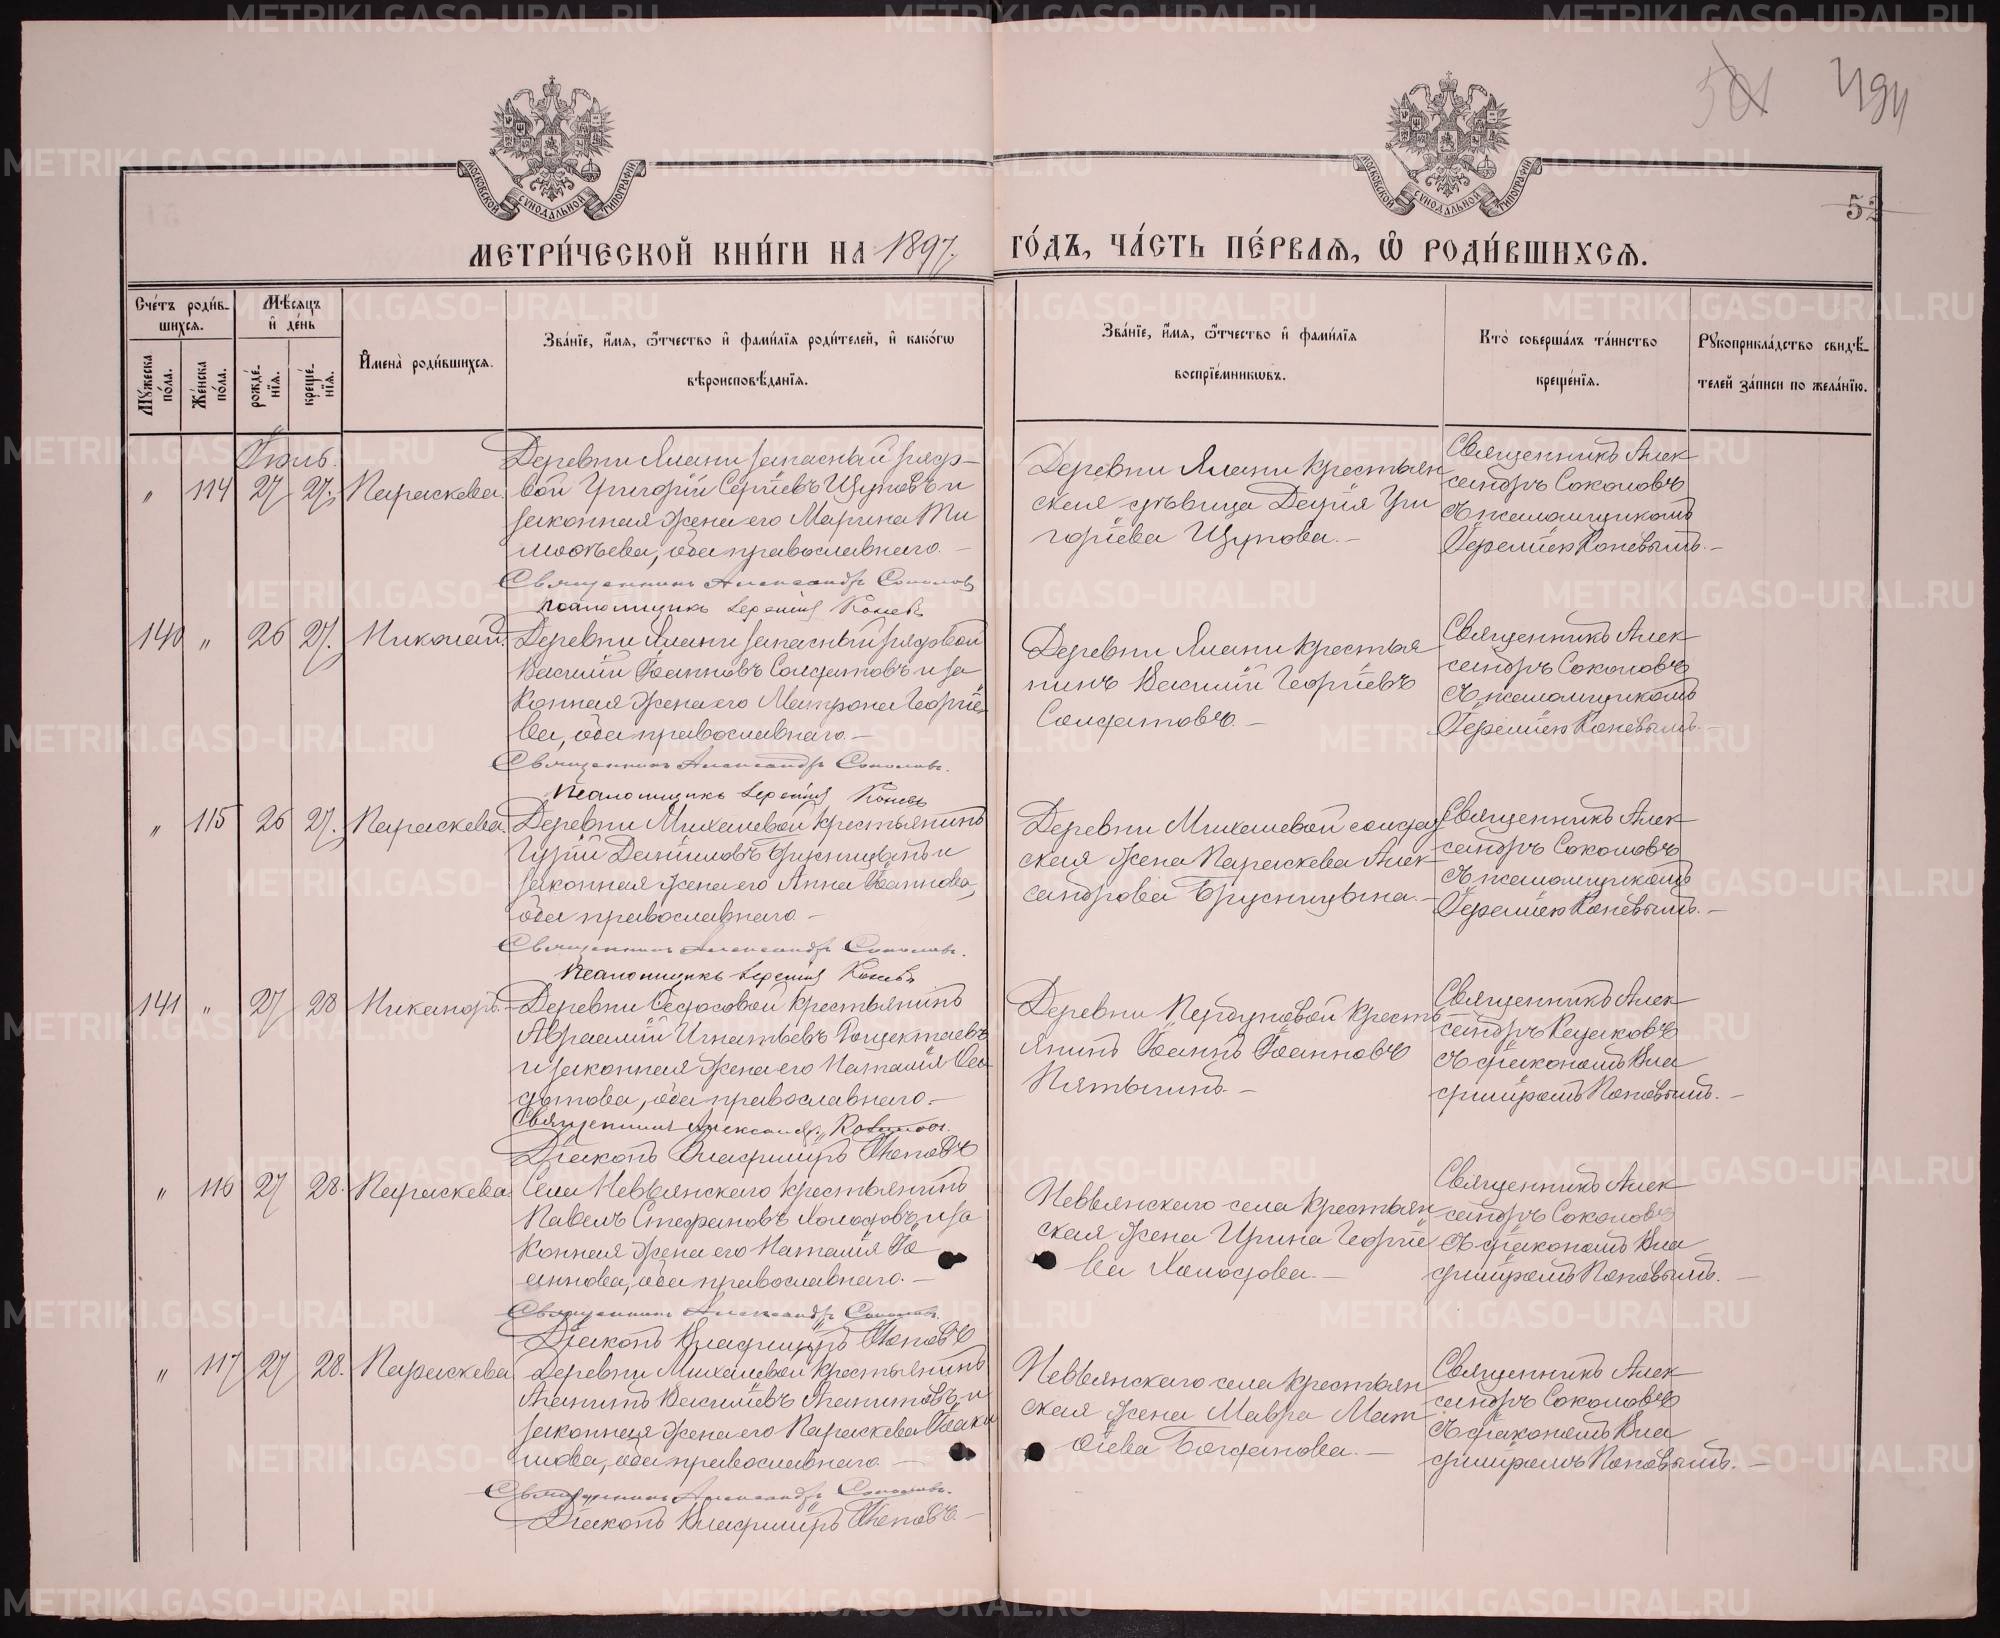 501 494
МОСКОВСКОЙ СѴНОДАЛЬНОЙ ТИПОГРАФІИ
МОСКОВСКОЙ СѴНОДАЛЬНОЙ ТИПОГРАФІИ
52
МЕТРИ́ЧЕСКОЙ КНИ́ГИ НА 1897. ГО́ДЪ, ЧА́СТЬ ПЕ́РВАѦ, Ѽ РОДИ́ВШИХСѦ.
Сче́тъ роди́в-
шихсѧ.
Мѣ́сѧцъ
и҆ де́нь
Мꙋ́жеска
по́ла.
Же́нска
по́ла.
рожде́-
нїѧ.
креще́-
нїѧ.
И҆мена̀ роди́вшихсѧ.
Зва́нїе, и҆́мѧ, ѻ҆́тчество и҆ фами́лїѧ роди́телей, и҆ како́гѡ
вѣроисповѣ́данїѧ.
Зва́нїе, и҆́мѧ, ѻ҆́тчество и҆ фами́лїѧ
воспрїе́мникѡвъ.
Кто̀ соверша́лъ та́инство
креще́нїѧ.
Рꙋкоприкла́дство свидѣ́-
телей за́писи по жела́нїю.
Іюль.
" 114 27 27. Параскева.
Деревни Ялани запасный рядо-
вой Григорій Сергіевъ Щуповъ и
законная жена его Марина Ти
моѳѣева, оба православнаго. —
Священникъ Александръ Соколовъ
Псаломщикъ Іеремія Коневъ
Деревни Ялани крестьян
ская дѣвица Дарія Гри
горіева Щупова. —
Священникъ Алек
сандръ Соколовъ
съ псаломщикомъ
Іереміею Коневымъ. —
140 " 26 27. Николай.
Деревни Ялани запасный рядовой
Василій Іоанновъ Солдатовъ и за
конная жена его Матрона Георгіе
ва, оба православнаго. —
Священникъ Александръ Соколовъ.
Псаломщикъ Іеремія Коневъ
Деревни Ялани крестья
нинъ Василій Георгіевъ
Солдатовъ. —
Священникъ Алек
сандръ Соколовъ
съ псаломщикомъ
Іереміею Коневымъ. —
" 115 26 27. Параскева.
Деревни Михалевой крестьянинъ
Гурій Даніиловъ Брусницынъ и
законная жена его Анна Іоаннова,
оба православнаго. —
Священникъ Александръ Соколовъ.
Псаломщикъ Іеремія Коневъ
Деревни Михалевой солдат
ская жена Параскева Алек
сандрова Брусницына. —
Священникъ Алек
сандръ Соколовъ
съ псаломщикомъ
Іереміею Коневымъ. —
141 " 27 28 Никаноръ.
Деревни Федосовой крестьянинъ
Авраамій Игнатьевъ
и законная жена его Наталія
дотова, оба православнаго. —
Священникъ Александръ
Діаконъ Владиміръ Поповъ
Деревни крестъ
янинъ Іоаннъ Іоанновъ
Пятыгинъ. —
Священникъ Алек
сандръ
съ діакономъ Вла
диміромъ Поповымъ. —
" 116 27 28. Параскева
Села Невьянскаго крестьянинъ
Павелъ Стефановъ Холодовъ и за
конная жена его Наталія Іо
аннова, оба православнаго. —
Священникъ Александръ Соколовъ.
Діаконъ Владиміръ Поповъ
Невьянскаго села крестьян
ская жена Ирина Георгіе
ва Холодова. —
Священникъ Алек
сандръ Соколовъ
съ діакономъ Вла
диміромъ Поповымъ. —
" 117 27 28. Параскева
Деревни Михалевой крестьянинъ
Ананій Василіевъ и
законная жена его Параскева Іоаки
мова, оба православнаго. —
Священникъ Александръ Соколовъ.
Діаконъ Владиміръ Поповъ. —
Невьянскаго села крестьян
ская жена Мавра Мат
ѳіева Богданова. —
Священникъ Алек
сандръ Соколовъ
съ діакономъ Вла
диміромъ Поповымъ. —
METRIKI.GASO-URAL.RU